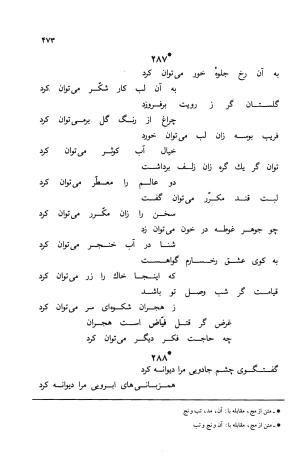 ۴۷۳
*۲۸۷
به آن رخ جلوهٔ خور می‌توان کرد
به آن لب کار شکّر می‌توان کرد
گلستان گر ز رویت برفروزد
چراغ از رنگ گل برمی‌توان کرد
فریب بوسه زان لب می‌توان خورد
خیال آب کوثر می‌توان کرد
توان گر یك گره زان زلف برداشت
دو عالم را معطّر می‌توان کرد
لبت قند مکرّر می‌توان گفت
سخن را زان مکّرر می‌توان کرد
چو جوهر غوطه در خون می‌توان زد
شنا در آب خنجر می‌توان کرد
به کوی عشق رخسارم گواهست
که اینجا خاك را زر می‌توان کرد
قیامت گر شب وصل تو باشد
ز هجران شکوه‌ای سر می‌توان کرد
غرض گر قتل فیّاض است هجران
چه حاجت فکر دیگر می‌توان کرد
*۲۸۸
گفتگوی چشم جادویی مرا دیوانه کرد
همزبانی‌های ابرویی مرا دیوانه کرد
* ـ متن از مج، مقابله با: آن، مد، تب و نج
* ـ متن از مج، مقابله با: آن و نج و تب